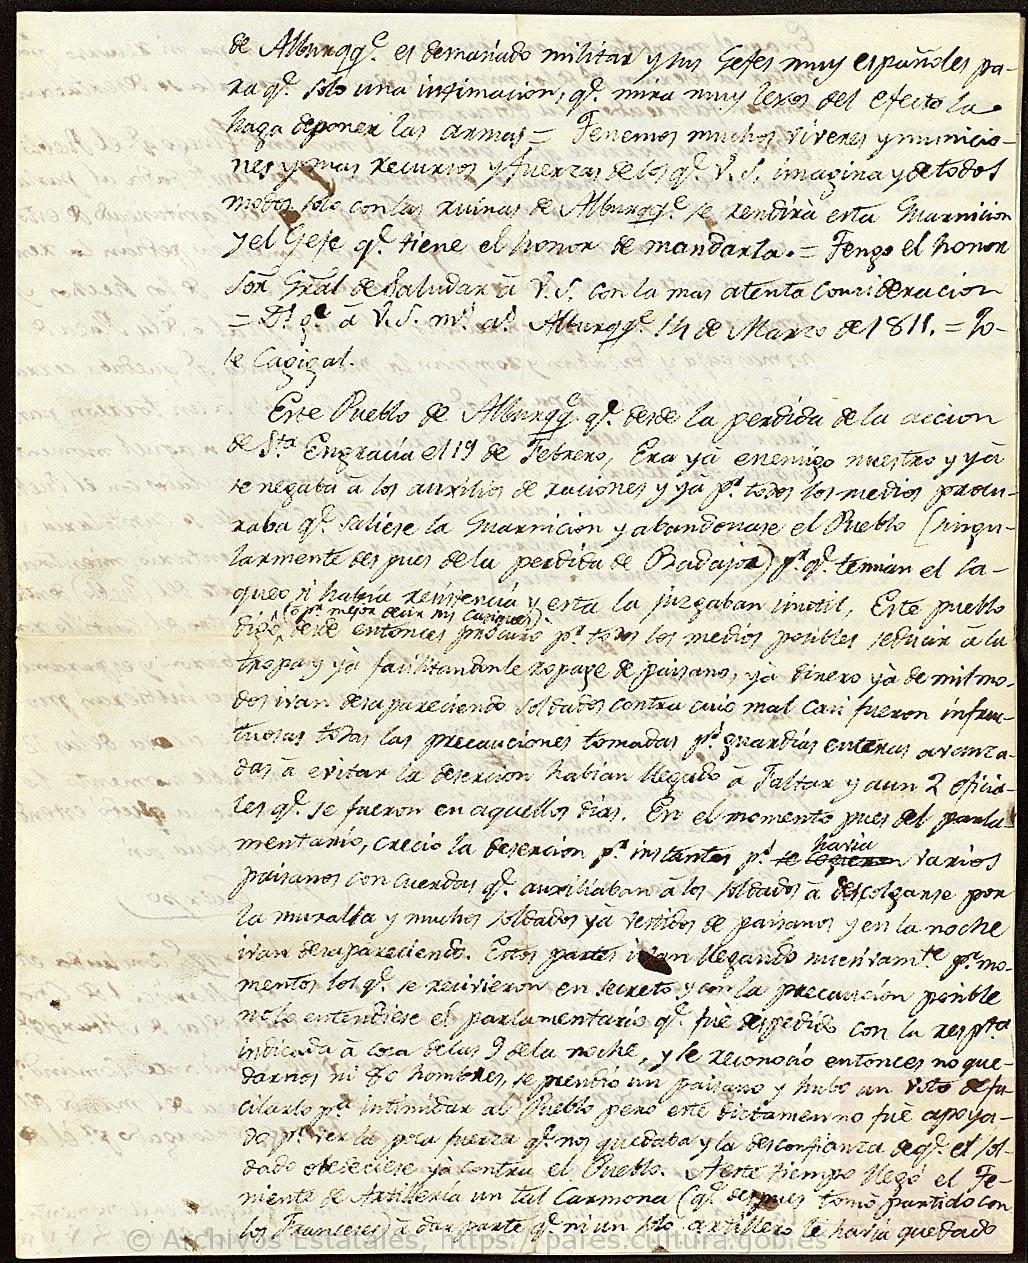 de Alburqqe. es demaciado militar y sus Gefes muy españoles pa-
ra qe. solo una intimacion, qe. mira muy lexos del efecto la
haga deponer las armas = Tenemos muchos viveres y municio-
nes y mas recursos y fuerzas de los qe. V. S. imagina y de todos
modos solo con las ruinas de Alburqqe. se rendirà esta Guarnicion
y el Gefe qe. tiene el honor de mandarla. = Tengo el honor
Sor. Gral de Saludar à V. S. con la mas atenta consideracion
= Ds. ge. à V. S. ms. as. Alburqqe. 14 de Marzo de 1811. = Jo-
se Cagigal.
Este Pueblo de Alburqqe. qe. desde la perdida de la accion
de Sta. Engracia el 19 de Febrero, Era yà enemigo nuestro y yà
se negaba à los auxilios de raciones y yà pr. todos los medios procu-
raba qe. saliese la Guarnicion y abandonase el Pueblo (singu-
larmente despues de la perdida de Badajoz) pr. qe. temian el sa-
queo si habia resistencia y esta la juzgaban inutil, Este pueblo
(o pr. mejor decir sus
digo, desde entonces procurò pr. todos los medios posibles seducir à la
tropa y yà facilitandole ropage de paisano, yà dinero yà de mil mo-
dos ivan desapareciendo soldados contra cuio mal casi fueron infruc-
tuosas todas las precauciones tomadas pr. guardias enteras avanza-
das à evitar la desercion habian llegado à faltar y aun 2 oficia-
les qe. se fueron en aquellos dias. En el momento pues del parla-
mentario, crecio la desercion pr. instantes pr.
havia
varios
paisanos con cuerdas qe. auxiliaban à los soldados à descolgarse por
la muralla y muchos soldados yà vestidos de paisanos y en la noche
ivan desapareciendo. Estos partes ivan llegando nuevamte. pr. mo-
mentos los qe. se recivieron en secreto y con la precaucion posible
no lo entendiese el parlamentario qe. fue despedido con la respta.
indicada à cosa de las 9 de la noche, y se reconociò entonces no que-
darnos ni 80 hombres, se prendiò un paisano y hubo un voto de fu-
cilarlo pa. intimidar al Pueblo pero este dictamen no fue apoya-
do pr. ver la poca fuerza qe. nos quedaba y la desconfianza de qe. el sol-
dado obedeciese yà contra el Pueblo. A este tiempo llegò el Te-
niente de Artilleria un tal Carmona (qe. despues tomò partido con
los Franceses) à dar parte qe. ni un solo artillero le havia quedado
© Archivos Estatales, https://pares.cultura.gob.es